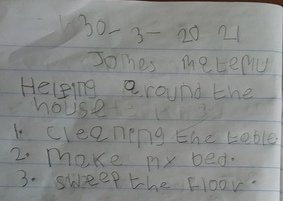 30-3-2021
James matemu
Helping around the
house
1. cleaning the table
2. make my bed.
3. sweep the floor.